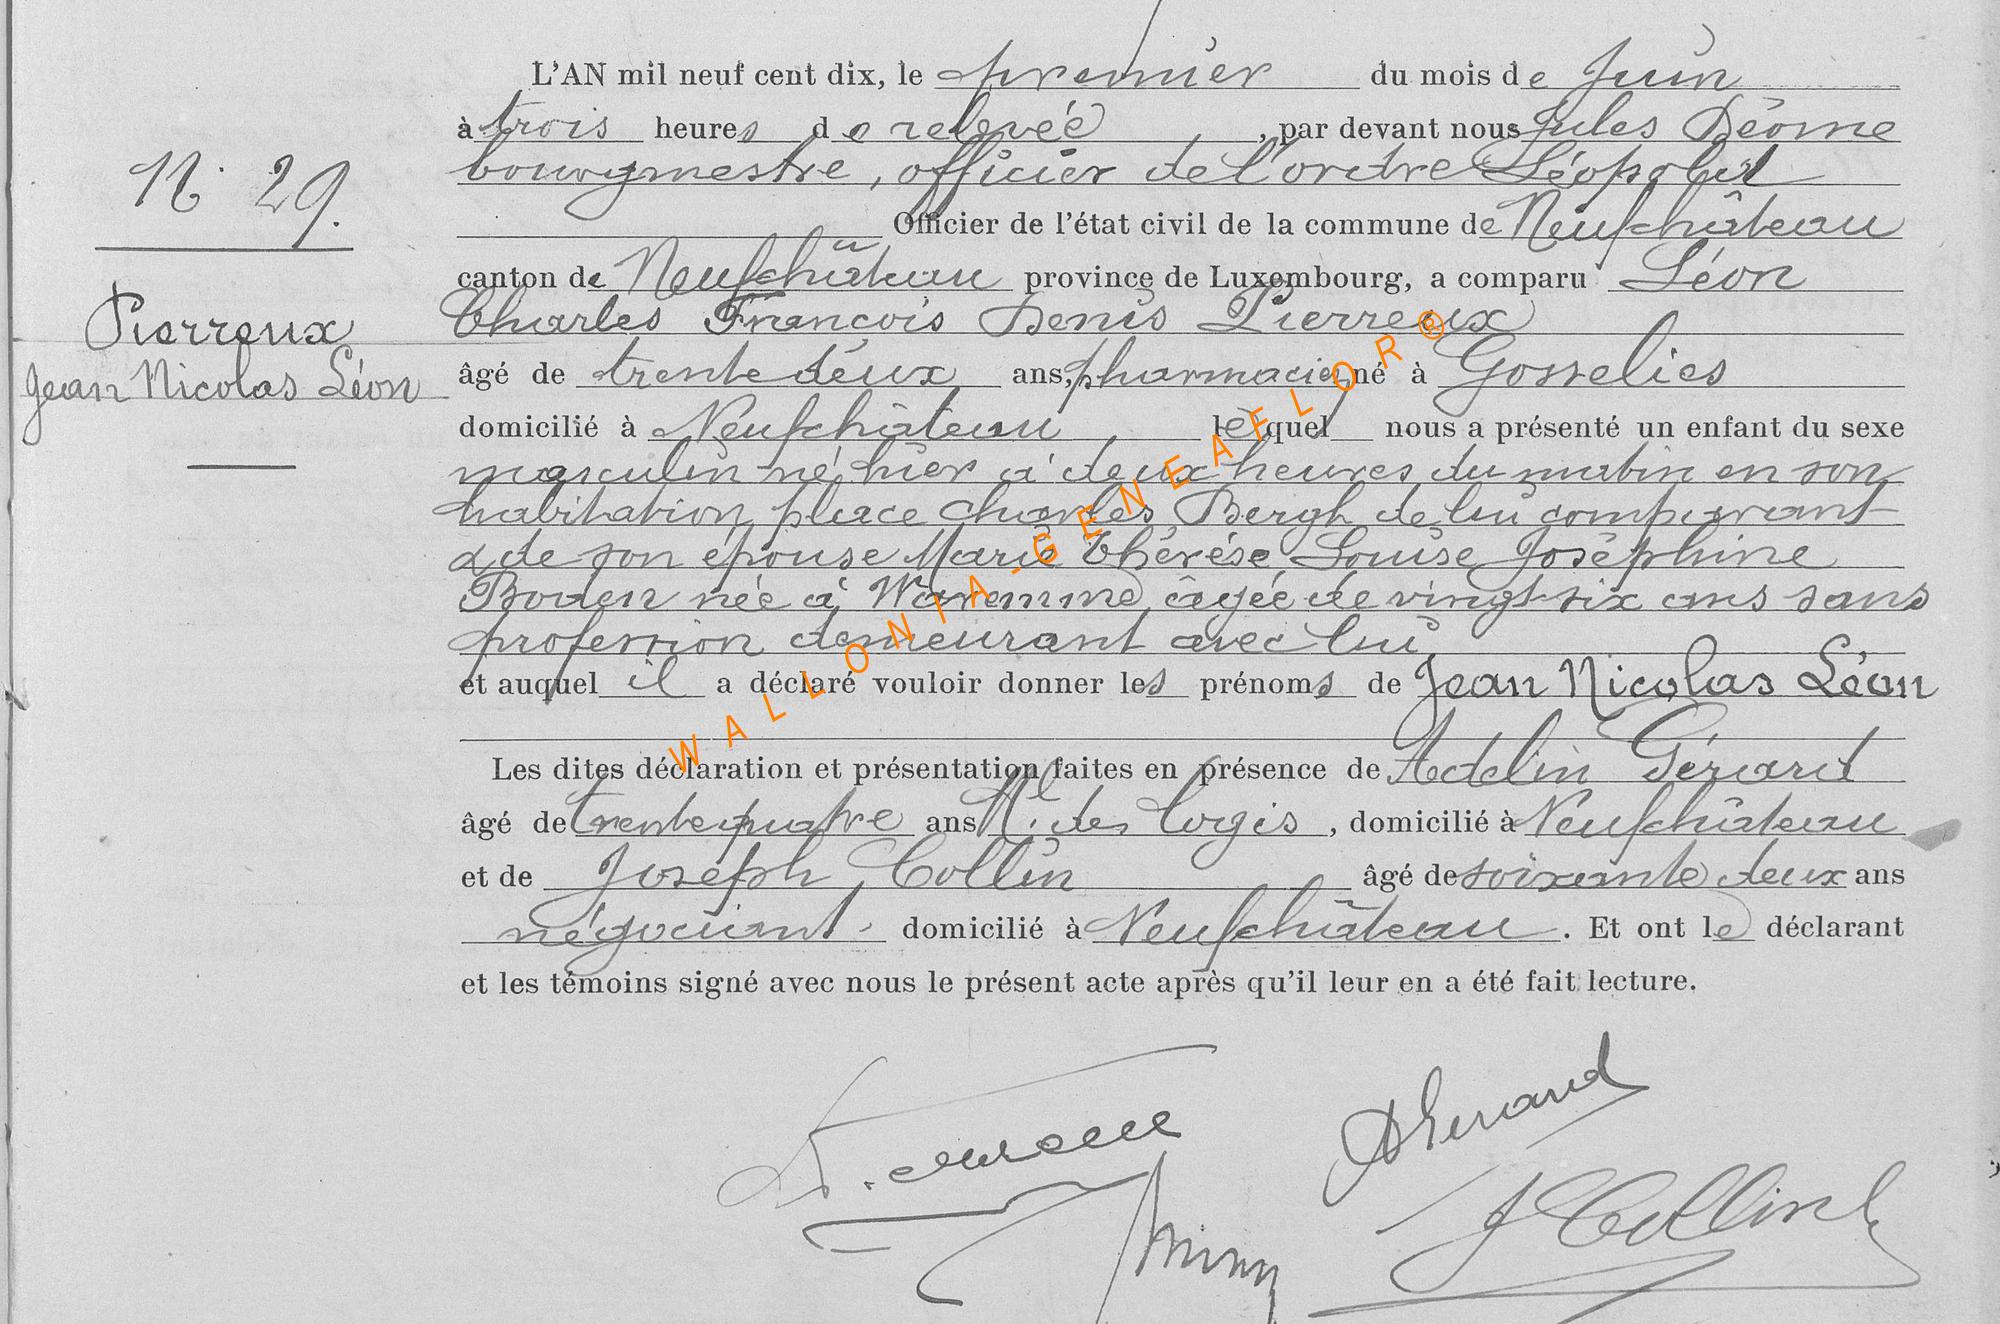 L'AN mil neuf cent dix, le premier du mois de Juin
à trois heures de relevée, par devant nous Jules Déome
bourgmestre, officier de l'ordre Léopold
Officier de l'état civil de la commune de Neufchâteau
canton de Neufchâteau province de Luxembourg, a comparu Léon
Charles François Denis Pierreux
âgé de trente deux ans, pharmacien né à Gosselies
domicilié à Neufchâteau lequel nous a présenté un enfant du sexe
masculin né hier à deux heures du matin en son
habitation place Charles Bergh de lui comparant
& de son épouse Marie Thérèse Louise Joséphine
née à Waremme âgée de vingt-six ans sans
profession demeurant avec lui
et auquel il a déclaré vouloir donner les prénoms de Jean Nicolas Léon
Les dites déclaration et présentation faites en présence de Adelin Gérard
âgé de trente quatre ans Ml. des logis, domicilié à Neufchâteau
et de Joseph Collin âgé de soixante deux ans
négociant domicilié à Neufchâteau. Et ont le déclarant
et les témoins signé avec nous le présent acte après qu'il leur en a été fait lecture.
N. 29.
Pierreux
Jean Nicolas Léon
AGerard
J Collin
WALLONIA-GENEAFLOR®